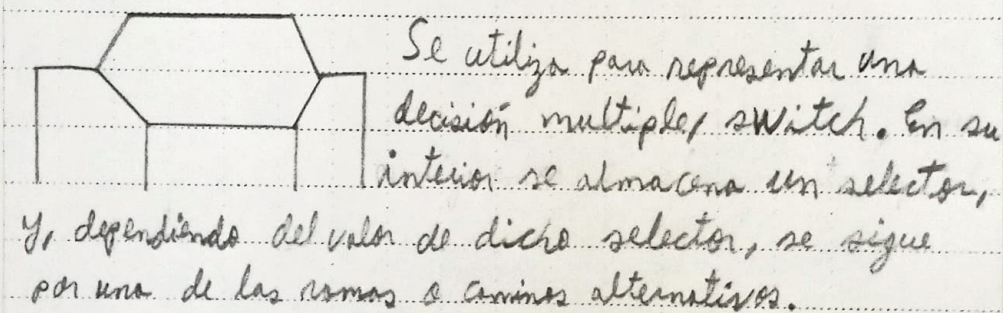 Se utiliza para representar una
decisión multiple, switch. En su
interior se almacena un selector,
y, dependiendo del valor de dicho selector, se sigue
por una de las ramas o caminos alternativos.